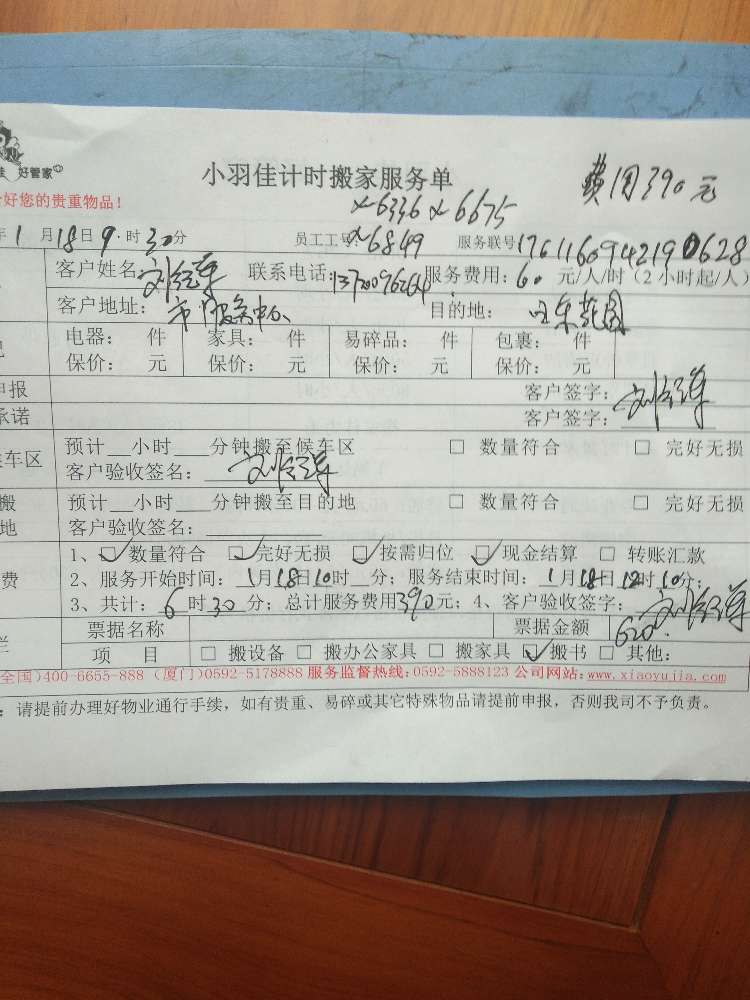 好管家
小羽佳计时搬家服务单
费用390元
好您的贵重物品!
x6336 x6675
年1月18日9时30分 员工工号:x6849 服务联号1761160942190628
客户姓名: 联系电话: 服务费用:60元/人/时(2小时起/人)
客户地址:市服务中心 目的地:
电器: 件 家具: 件 易碎品: 件 包裹: 件
保价: 元 保价: 元 保价: 元 保价: 元
申报 客户签字:
承诺 客户签字:
车区 预计__小时___分钟搬至候车区 □ 数量符合 □ 完好无损
客户验收签名:
搬 预计__小时___分钟搬至目的地 □ 数量符合 □ 完好无损
地 客户验收签名:
1、☑数量符合 ☑完好无损 ☑按需归位 ☑现金结算 □ 转账汇款
费 2、服务开始时间:1月18日10时__分;服务结束时间:1月18日12时10分;
3、共计:6时30分;总计服务费用390元;4、客户验收签字:
票据名称 票据金额 620
项 目 □ 搬设备 □ 搬办公家具 □ 搬家具 ☑搬书 □ 其他:
全国)400-6655-888 (厦门)0592-5178888 服务监督热线:0592-5888123 公司网站:www.xiaoyujia.com
:请提前办理好物业通行手续,如有贵重、易碎或其它特殊物品请提前申报,否则我司不予负责。